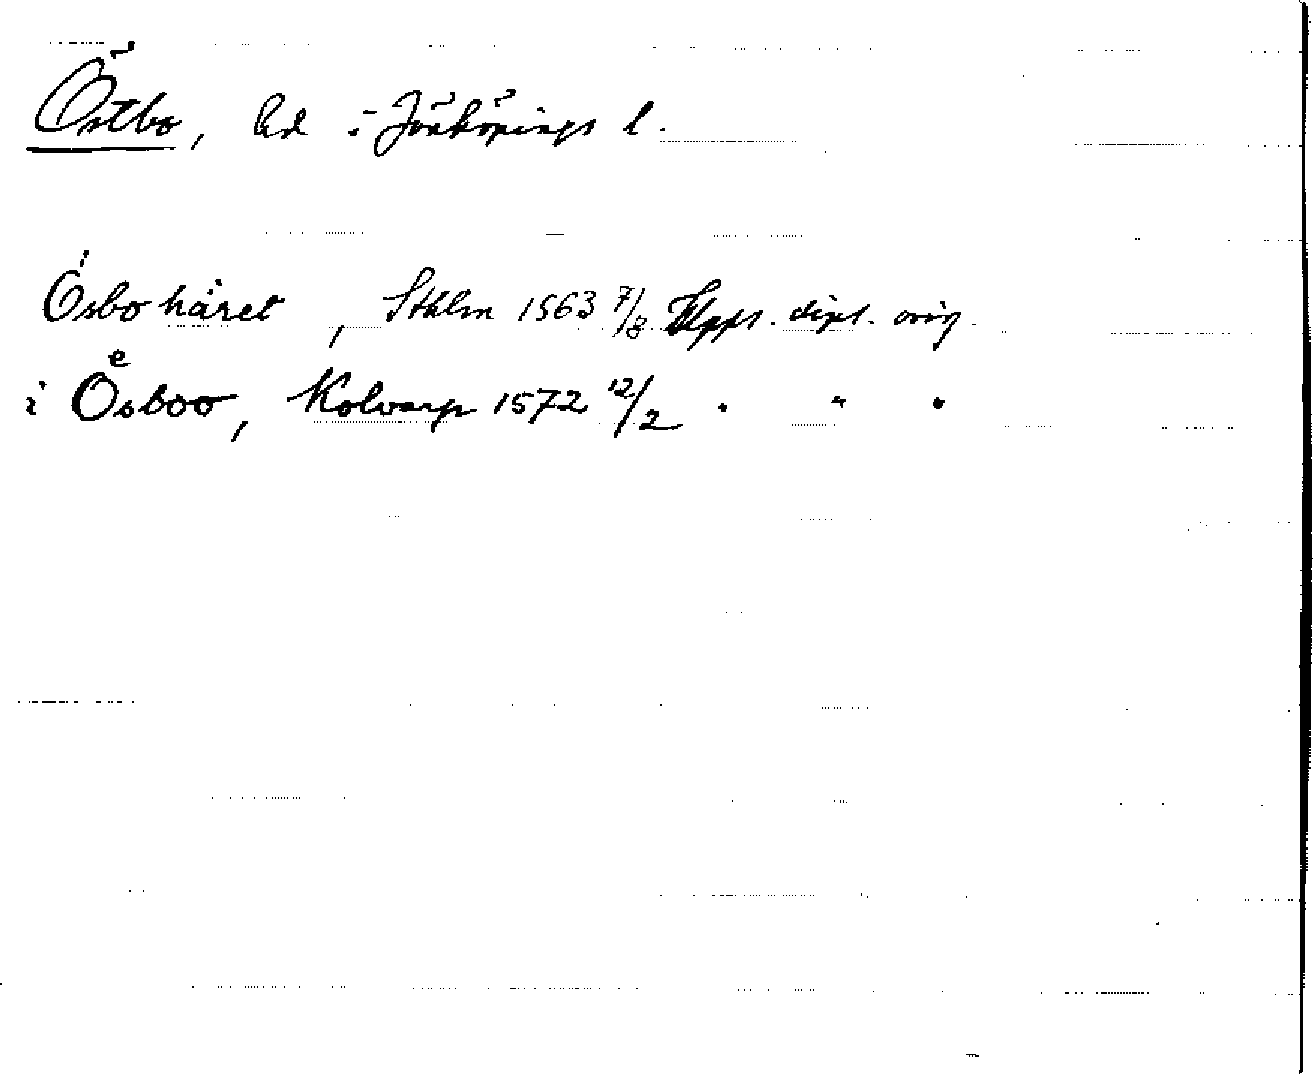 Östbo, hd i Jönköpings l.
Ósbo häret, Sthlm 1563 7/8 Upps. dipl. orig.
i Oͤsboo, Kolvarp 1572 12/2 " " "